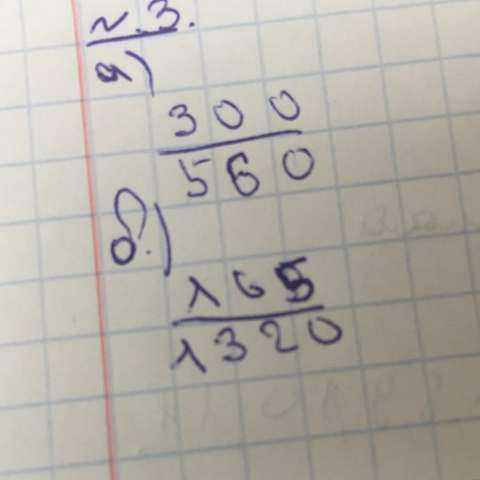 № 3.
а)
300
560
б.)
165
1320